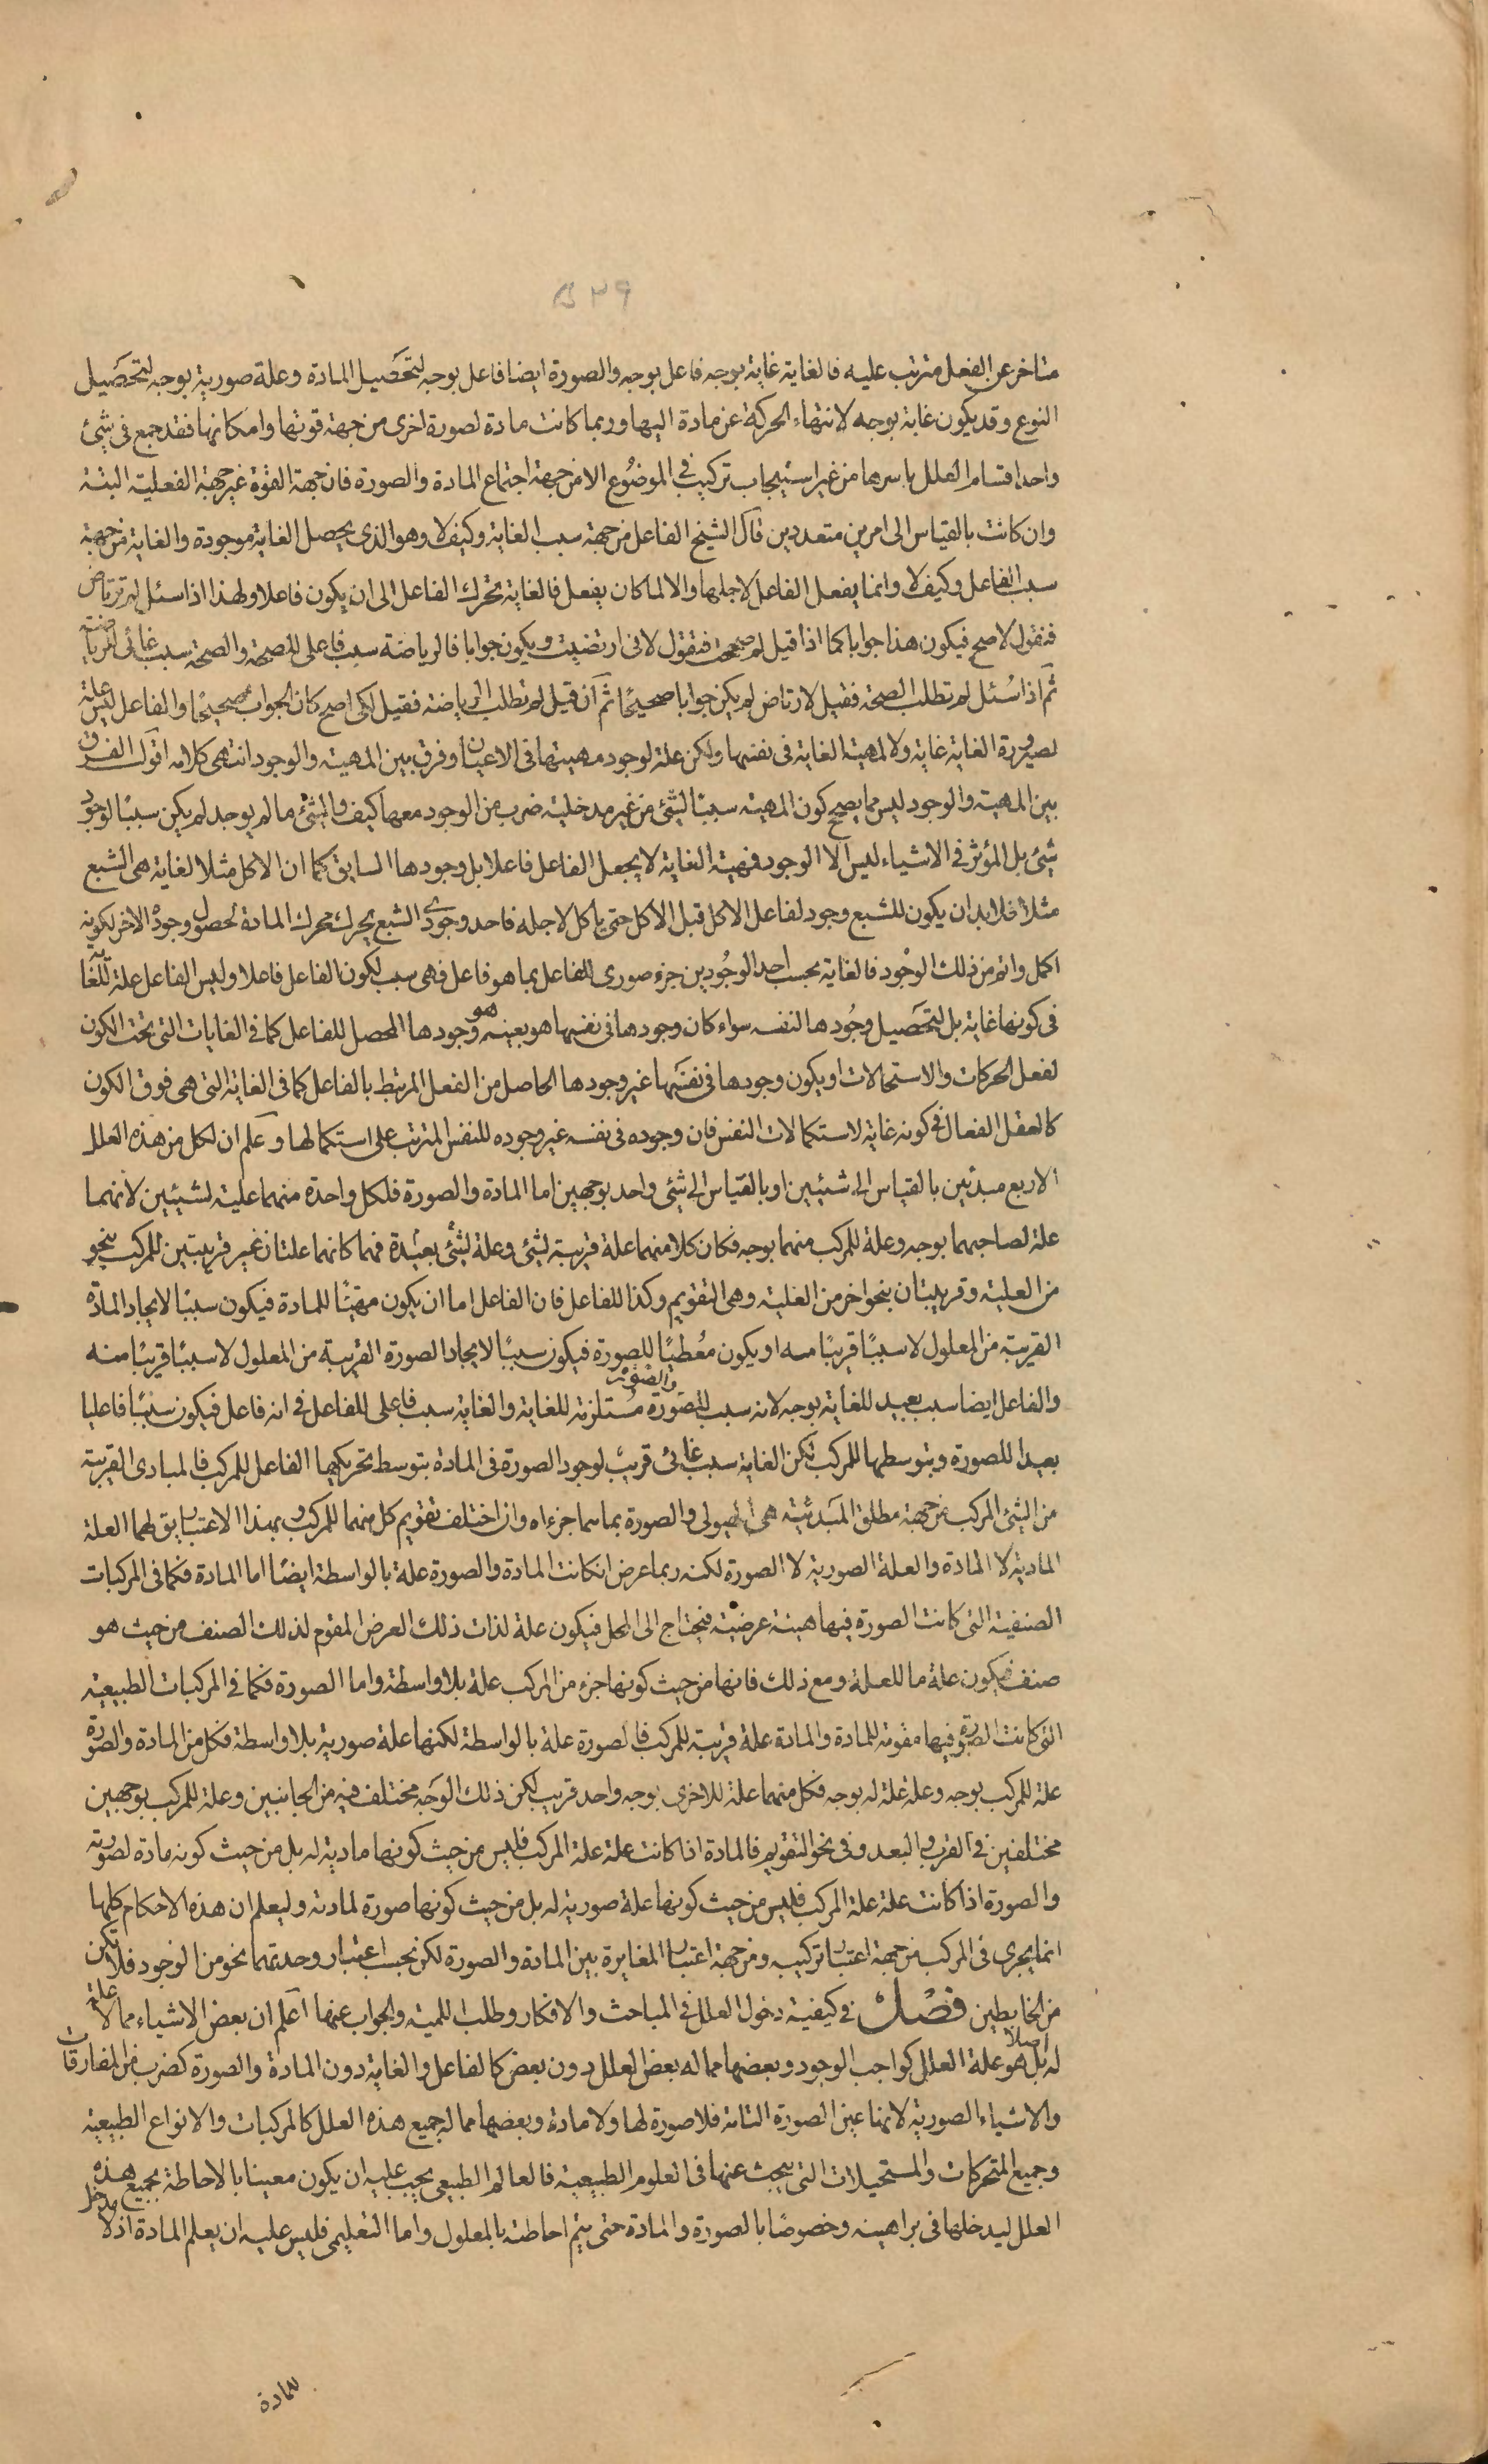 ٥٣٩
متاخر عن الفعل مترتب عليه فالغاية غاية بوجه فاعل بوجه والصورة ايضا فاعل بوجه لتحصيل المادة وعلة صورية بوجه لتحصيل
النوع وقد يكون غاية بوجه لانتهاء الحركة عن مادة اليها وربما كانت مادة لصورة اخرى من جهة قوتها وامكانها فقد جمع فى شئ
واحد اقسام العلل باسرها من غير استيجاب تركيب في الموضوع الا من جهة اجتماع المادة والصورة فان جهة القوة غير جهة الفعلية البتة
وان كانت بالقياس الى امرين متعددين قال الشيخ الفاعل من جهة سبب الغاية وكيف لا وهو الذى يحصل الغاية موجودة والغاية من جهة
سبب الفاعل وكيف لا وانما يفعل الفاعل لاجلها والا لما كان يفعل فالغاية تحرك الفاعل الى ان يكون فاعلا ولهذا اذا سئل لم ترتاض
فنقول لاصح فيكون هذا جوابا كما اذا قيل لم صححت فتقول لانى ارتضت ويكون جوابا فالرياضة سبب فاعلى للصحة والصحة سبب غائى للرياضة
ثم اذا سُئل لم تطلب الصحة فقيل لارتاض لم يكن جوابا صحيحًا ثم ان قيل لم تطلب الرياضة فقيل لكى اصح كان الجواب صحيحًا والفاعل ليس علة
لصيرورة الغاية غاية ولا لمهية الغاية فى نفسها ولكن علة لوجود مهيتها فى الاعيان وفرق بين المهية والوجود انتهى كلامه اقول الفرق
بين المهية والوجود ليس مما يصحح كون المهية سببًا لشئ من غير مدخلية ضرب من الوجود معها كيف والشئ ما لم يوجد لم يكن سببًا لوجود
شئ بل المؤثر في الاشياء ليس الا الوجود فمهية الغاية لا يجعل الفاعل فاعلا بل وجودها السابق كما ان الاكل مثلا لغاية هى الشبع
مثلا فلا بد ان يكون للشبع وجود لفاعل الاكل قبل الاكل حتى ياكل لاجله فاحد وجودى الشبع يحرك محرك المادة لحصول وجوده الاخر لكونه
اكمل واتم من ذلك الوجود فالغاية بحسب احد الوجودين جزء صورى للفاعل بما هو فاعل فهى سبب لكون الفاعل فاعلا وليس الفاعل علة للغاية
فى كونها غاية بل لتحصيل وجودها لنفسه سواء كان وجودها فى نفسها هو بعينه هو وجودها المحصل للفاعل كما في الغايات التى تحت الكون
لفعل الحركات والاستحالات او يكون وجودها فى نفسها غير وجودها الحاصل من الفعل المرتبط بالفاعل كما فى الغاية التى هى فوق الكون
كالعقل الفعال في كونه غاية لاستكمالات النفس فان وجوده فى نفسه غير وجوده للنفس المترتب على استكمالها وعلم ان لكل من هذه العلل
الاربع مبدئين بالقياس الى شيئين او بالقياس الى شئ واحد بوجهين اما المادة والصورة فلكل واحدة منهما علية لشيئين لانهما
علة لصاحبهما بوجه وعلة للمركب منهما بوجه فكان كلا منهما علة قريبة لشئ وعلة لشئ بعيدة فهما كانهما علتان غير قريبتين للمركب بنحو
من العلية وقريبتان بنحو اخر من العلية وهى التقويم وكذا للفاعل فان الفاعل اما ان يكون مهيئًا للمادة فيكون سببًا لايجاد المادة
القريبة من المعلول لا سببًا قريبًا منه او يكون مُعطيًا للصورة فيكون سببًا لايجاد الصورة القريبة من المعلول لا سببًا قريبًا منه
والفاعل ايضا سبب بعيد للغاية بوجه لانه سبب للصورة والصورة مستلزمة للغاية والغاية سبب فاعلى للفاعل في انه فاعل فيكون سببًا فاعليا
بعيدا للصورة وبتوسطها للمركب لكن الغاية سبب غائى قريب لوجود الصورة فى المادة بتوسط تحريكها الفاعل للمركب فالمبادى القريبة
من الشئ المركب من جهة مطلق المبدئية هى الهيولى والصورة بما هما جزءاه وان اختلف تقويم كل منهما للمركب وبهذا الاعتبار يق لهما العلة
المادية لا المادة والعلة الصورية لا الصورة لكنه ربما عرض ان كانت المادة والصورة علة بالواسطة ايضًا اما المادة فكما فى المركبات
الصنفية التى كانت الصورة فيها هيئة عرضية فيحتاج الى المحل فيكون علة لذات ذلك العرض المقوم لذلك الصنف من حيث هو
صنف فيكون علة ما للعلة ومع ذلك فانها من حيث كونها جزء من المركب علة بلا واسطة واما الصورة فكما فى المركبات الطبيعية
التى كانت الصورة فيها مقومة للمادة والمادة علة قريبة للمركب فالصورة علة بالواسطة لكنها علة صورية بلا واسطة فكل من المادة والصورة
علة للمركب بوجه وعلة علة له بوجه فكل منهما علة للاخرى بوجه واحد قريب لكن ذلك الوجه مختلف فيه من الجانبين وعلة للمركب بوجهين
مختلفين في القرب والبعد وفى نحو التقويم فالمادة اذا كانت علة علة المركب فليس من حيث كونها مادية له بل من حيث كونه مادة لصورته
والصورة اذا كانت علة علة المركب فليس من حيث كونها علة صورية له بل من حيث كونها صورة لمادته وليعلم ان هذه الاحكام كلها
انما يجرى فى المركب من جهة اعتبار تركيب ومن جهة اعتبار المغايرة بين المادة والصورة لكن بحسب اعتبار وحدتهما نحو من الوجود فلا تكن
من الخابطين فصل في كيفية دخول العلل في المباحث والافكار وطلب اللمية والجواب عنها اعلم ان بعض الاشياء مما لا علة
له اصلا بل هو علة العلل كواجب الوجود وبعضها مما له بعض العلل دون بعض كالفاعل والغاية دون المادة والصورة كضرب من المفارقات
والاشياء الصورية لانها عين الصورة التامة فلا صورة لها ولا مادة وبعضها مما له جميع هذه العلل كالمركبات والانواع الطبيعية
وجميع المتحركات والمستحيلات التى يبحث عنها فى العلوم الطبيعية فالعالم الطبيعى يجب عليه ان يكون معينا بالاحاطة بجميع هذه
العلل ليدخلها فى براهينه وخصوصًا بالصورة والمادة حتى يتم احاطته بالمعلول واما التعليمى فليس عليه ان يعلم المادة اذ لا مدخل
للمادة